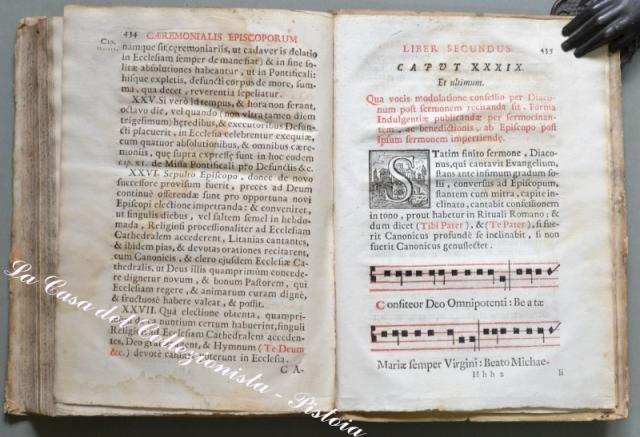 434 CÆREMONIALIS EPISCOPORUM
namque sit ceremoniariis, ut cadaveris delatio
in Ecclesiam semper de mane fiat; & in fine so-
litæ absolutiones habeantur, ut in Pontificali:
hisque expletis, defuncti corpus de more, sum-
ma, qua decet, reverentia sepeliatur.
XXV. Si verò id tempus, & hora non ferant,
octavo die, vel quando non ultra tamen diem
trigesimum hæredibus, & executoribus Defun-
cti placuerit, in Ecclesia celebrentur exequiæ,
cum quatuor absolutionibus, & omnibus cære-
moniis, que supra expresse sunt in hoc eodem
cap. XI. de Missa Pontificali pro Defunctis &c.
XXVI. Sepulto Episcopo, donec de novo
successore provisum fuerit, preces ad Deum
continuè offerendæ sunt pro opportuna novi
Episcopi electione impetranda: & conveniret,
ut singulis diebus, vel saltem semel in hebdo-
mada, Religiosi processionaliter ad Ecclesiam
Cathedralem accederent, Litanias cantantes,
& ibidem pias, & devotas orationes recitarent,
cum Canonicis, & clero ejusdem Ecclesiæ Ca-
thedralis, ut Deus illis quamprimùm concede-
re dignetur novum, & bonum Pastorem, qui
Ecclesiam regere, & animarum curam dignè,
& fructuosè habere valeat, & possit.
XXVII. Quâ electione obtenta, quampri-
nuntium certum habuerint, singuli
Religiosi ad Ecclesiam Cathedralem acceden-
tes, Deo gratias agent, & Hymnum (Te Deum
&c.) devotè cantare poterunt in Ecclesia.
C A-
LIBER SECUNDUS 435
CAPUT XXXIX.
Et ultimum.
Qua vocis modulatione confessio per Diaco-
num post sermonem recitanda sit. Forma
Indulgentiæ publicandæ per sermocinan-
tem, ac benedictionis, ab Episcopo post
ipsum sermonem impertiendæ.
STatim finito sermone, Diaco-
nus, qui cantavit Evangelium,
stans ante infimum gradum so-
lii, conversus ad Episcopum,
stantem cum mitra, capite in-
clinato, cantabit confessionem
in tono, prout habetur in Rituali Romano; &
dum dicet (Tibi Pater), & (Te Pater), si fue-
rit Canonicus profundè se inclinabit, si non
fuerit Canonicus genuflectet.
Confiteor Deo Omnipotenti: Beatæ
Mariæ semper Virgini: Beato Michae-
Hhh 2 li
La Casa del Collezionista - Pistoia